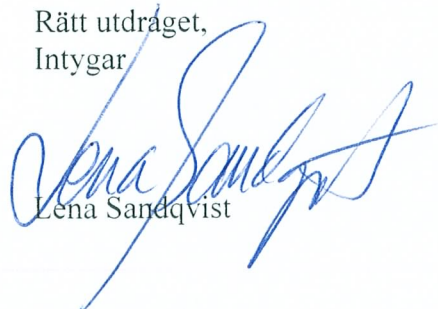 Rätt utdraget,
Intygar
Lena Sandqvist
Lena Sandqvist